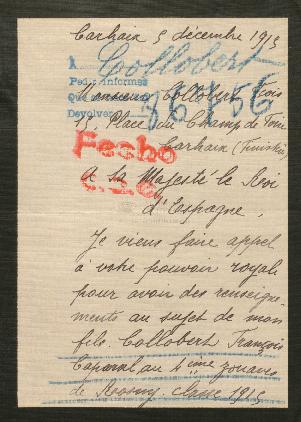 Carhaix 5 décembre 1915
A Collobert
Pedir informes
Que
Devolver
86456
Monsieur Collobert
15, Place du Champ de Foire
Carhaix (Finistère)
Fecho
à Sa Majesté le Roi
d'Espagne.
Je viens faire appel
à votre pouvoir royal
pour avoir des renseigne-
ments au sujet de mon
fils. Collobert François
Caporal au 4ième zouaves
de Rosny classe 1915